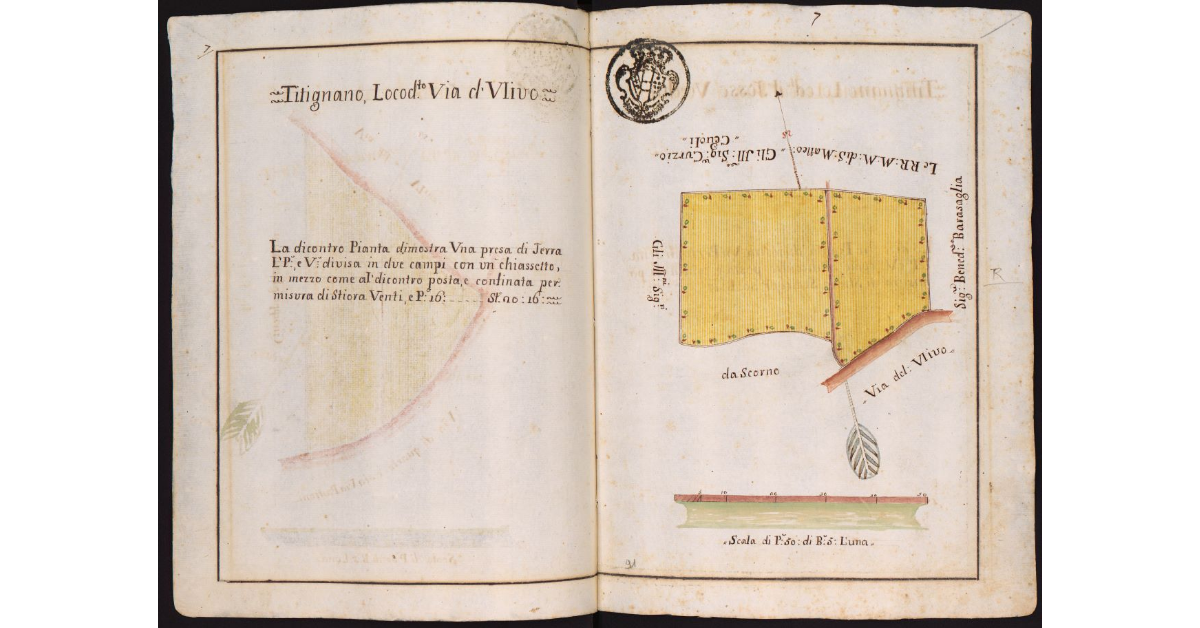 7
Titignano, Locod.to Via d'Vlivo
La dicontro Pianta dimostra Vna presa di Terra
L.P. e V. divisa in due campi con un chiassetto,
in mezzo come al dicontro posta, e confinata per
misura di Stiora Venti, e P. 16: St. 20: 16:
7
Le RR: M: M: di S: Matteo:
Gli Jll: Sig: Curzio
Ceuoli
Gli Jll: Sig:
Sig: Bened: Barasaglia
R
da Scorno
Via del: Vlivo
Scala di P. 50: di B. 5: L'una
91